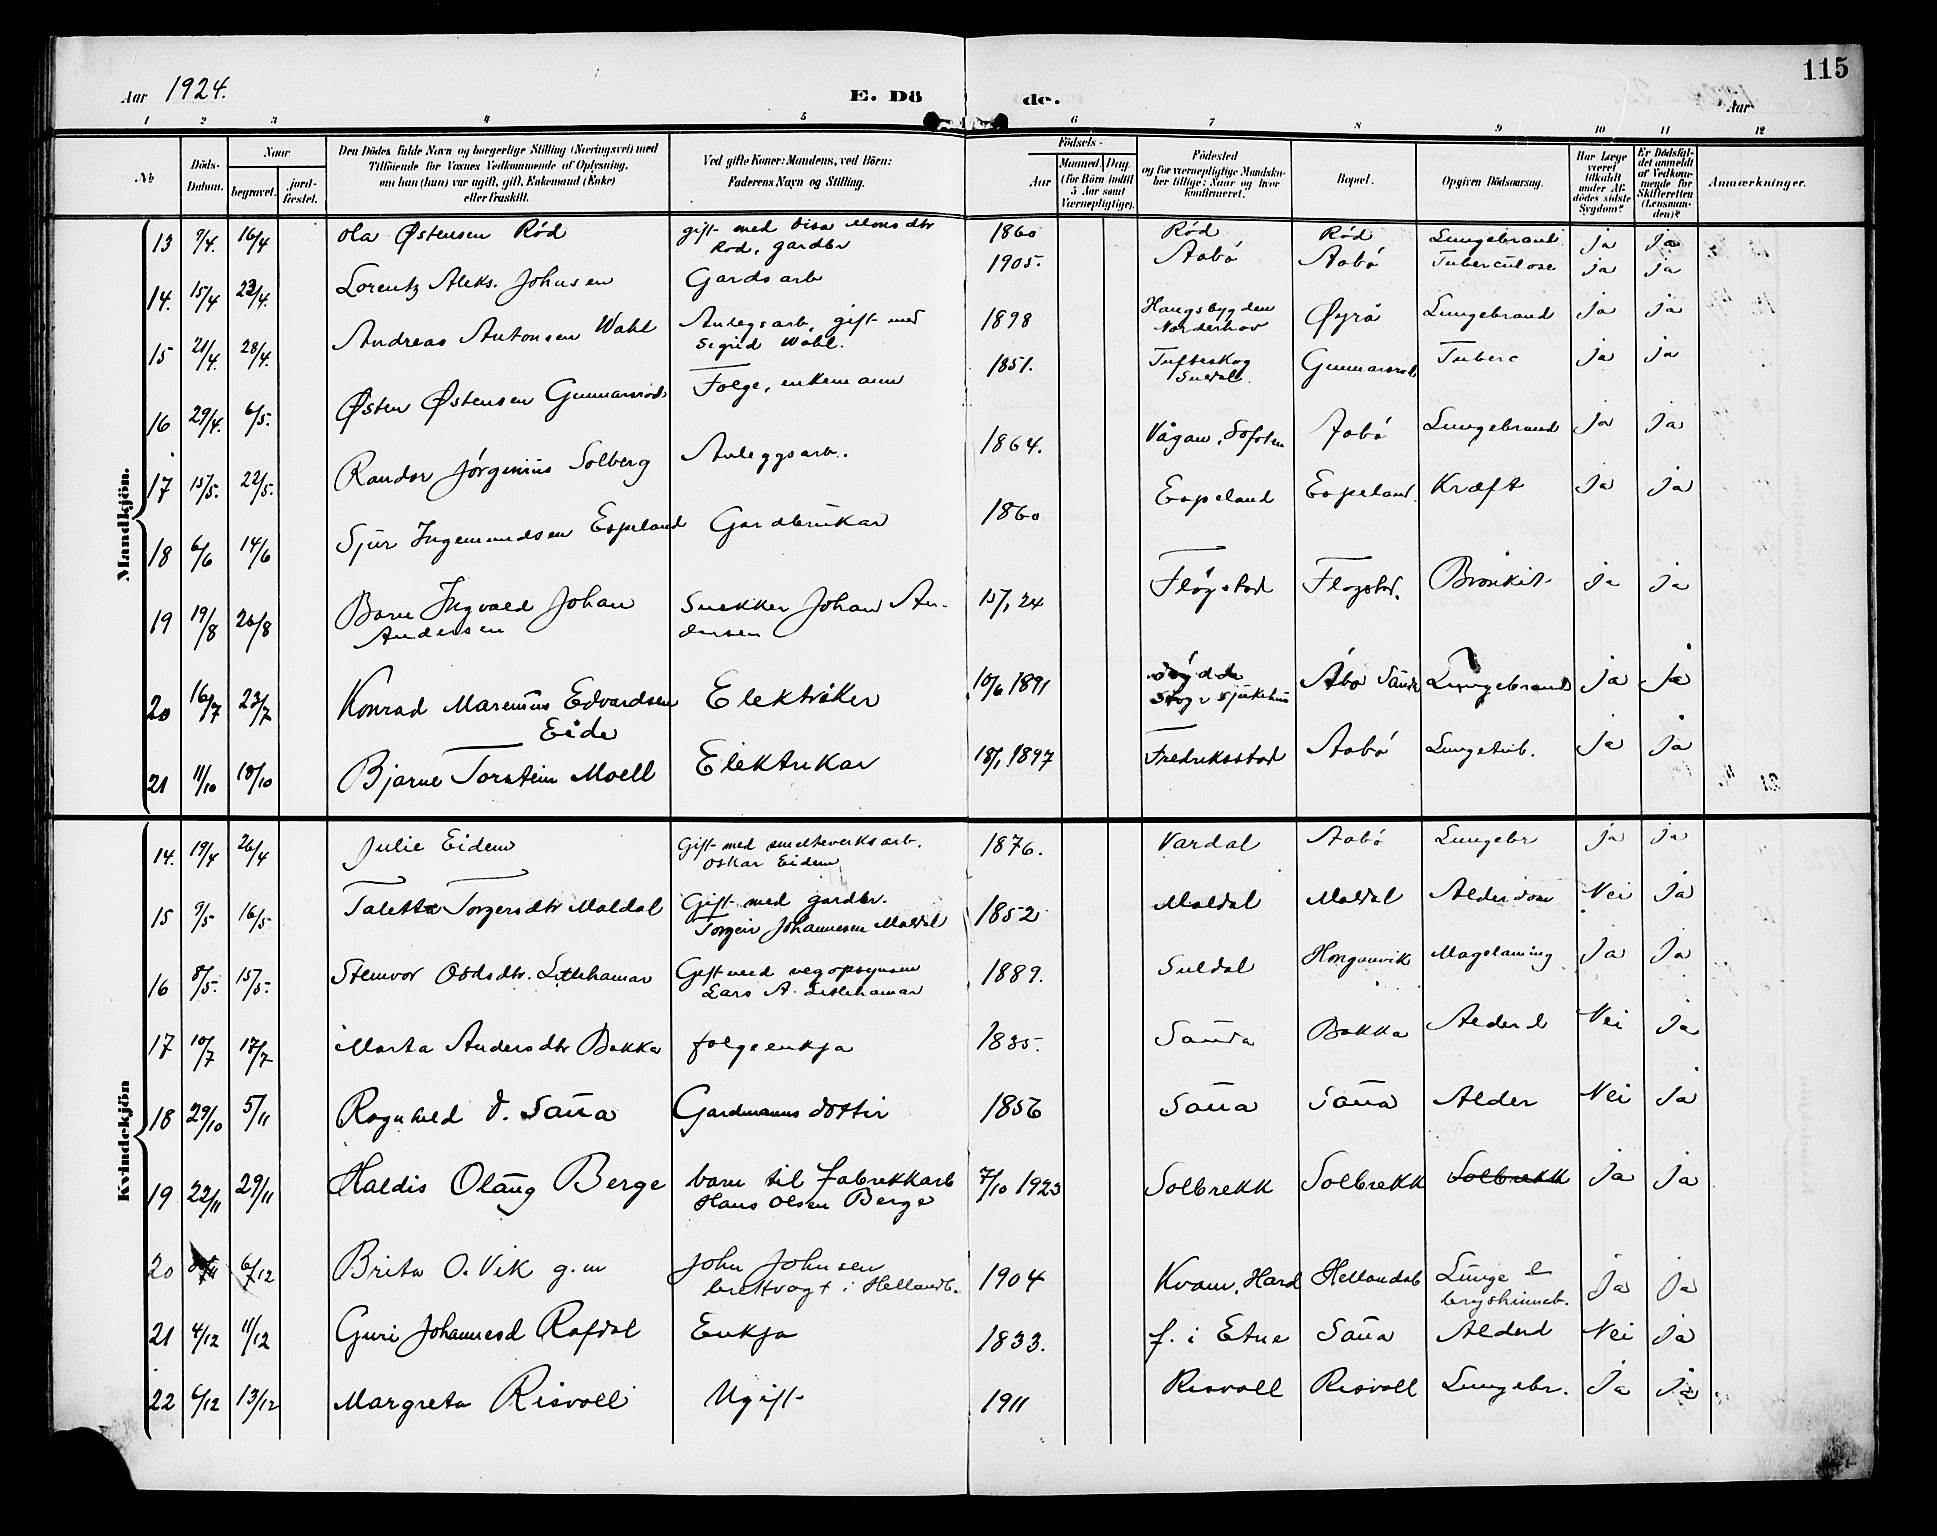 115
Aar 1924. E. Dö de. Aar
1 2 3 4 5 6 7 8 9 10 11 12
No Döds-Datum. Naar begravet. jord-fæstet. Den Dödes fulde Navn og borgerlige Stilling (Næringsvei) med Tilföiende for Voxnes Vedkommende af Oplysning, om han (hun) var ugift, gift, Enkemand (Enke) eller fraskilt. Ved gifte Koner: Mandens, ved Börn: Faderens Navn og Stilling. Födsels- Aar Maaned. Dag. (for Börn indtil 5 Aar samt Værnepligtige). Födested og for værnepligtige Mandskaber tillige: Naar og hvor konfirmeret. Bopæl. Opgiven Dödsaarsag. Har Læge været tilkaldt under Afdödes sidste Sygdom? Er Dödsfaldet anmeldt af Vedkommende for Skifteretten (Lensmanden)? Anmærkninger.
Mandkjön.
13 9/4. 16/4 Ola Østensen Rød gift med Sisa Monsdtr Rød, gardbr 1860 Rød Rød Lungebrand ja ja
14. 15/4 23/4. Lorentz Aleks. Johnsen Gardsarb 1905. Aabø Aabø Tuberculose ja ja
15 21/4. 28/4. Andreas Antonsen Wahl Anlegsarb, gift med Sigrid Wahl. 1898 Haugsbygden Norderhov Øyrå Lungebrand ja ja
16 29/4. 6/5. Østen Østensen Gunnarsrod Folge, enkemann 1851. Tufteskog Suldal. Gunnarsrod Tuberc ja ja
17 15/5. 22/5. Randor Jørginius Solberg Anleggsarb. 1864. Vågan, Lofoten Aabø Lungebrand ja ja
18 6/6 14/6 Sjur Ingemundsen Espeland Gardbrukar 1860 Espeland Espeland. Kræft ja ja
19 19/8 26/8 Barn Ingvald Johan Andersen Snekker Johan Andersen 15/1 24 Fløgstad Flogstad. Bronkit ja ja
20 16/7 23/7 Konrad Marenius Edvardsen Eide Elektriker 10/6 1891 Åbø Sauda Lungebrand ja ja
21 11/10 18/10 Bjarne Torstein Moell Elektrikar 18/1 1897 Fredriksstad Aabø Lungetub. ja ja
Kvindekjön
14. 19/4 26/4 Julie Eidem Gift med smelteverksarb. Oskar Eidem 1876. Vardal Aabø Lungebr ja ja
15 9/5 16/5 Taletta Torgersdtr Maldal Gift med gardbr. Torgeir Johannesen Maldal 1852 Maldal Maldal Alderdom Nei ja
16 8/5. 15/5. Steinvor Oddsdtr. Litlehamar Gift med vegopsynsm Lars A. Litlehamar 1889. Suldal Honganvik Magelaming Ja Ja
17 10/7 17/7 Marta Andersdtr Bakka folgeenkja 1835. Sauda Bakka Alderd Nei ja
18 29/10 5/11 Ragnhild V. Saua Gardmanns dottir 1856 Saua Saua Alder Nei ja
19 22/11 29/11 Haldis Olaug Berge barn til fabrekkarb Hans Olsen Berge 7/10 1923 Solbrekk Solbrekk Solbrekk Ja Ja
20 6/12 Brita O. Vik g.m John Johnsen brettvogt i Hellandb. 1904 Kvam, Hard Hellandsb Lunge & bryshinneb. Ja Ja
21 4/12 11/12 Guri Johannesd Rafdal Enkja 1833. f. i Etne Saua Alderd Nei ja
22 6/12 13/12 Margreta Risvoll Ugift 1911 Risvoll Risvoll Lungebr. Ja ja